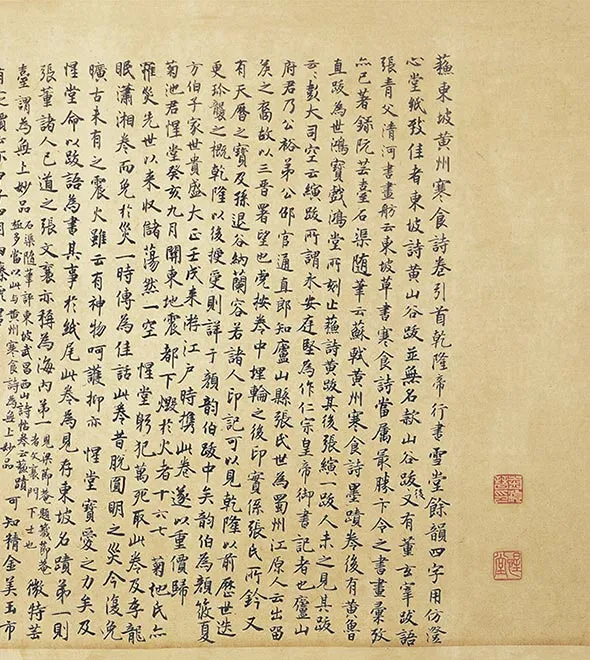 蘓東坡黃州寒食詩卷引首乾隆帝行書雪堂餘韻四字用仿澄
心堂紙致佳者東坡詩黃山谷跋並無名款山谷跋後又有董玄宰跋語
張青父清河書畫舫云東坡草書寒食詩當屬最勝卞令之書畫彙攷
亦已著錄阮芸臺石渠隨筆云蘇軾黃州寒食詩墨蹟卷後有黃魯
直跋為世鴻寶戲鴻堂所刻止蘇詩黃跋其後張縯一跋人未之見其跋
云云彭大司空云縯跋所謂永安庭堅為作仁宗皇帝御書記者也廬山
府君乃公裕弟公邵官通直郎知廬山縣張氏世為蜀州江原人云出留
矦之裔故以三晉署望也虎按卷中埋輪之後印實係張氏所鈐又
有天曆之寶及孫退谷納蘭容若諸人印記可見乾隆以前歷世迭
更珍襲之概乾隆以後授受則詳于顏韵伯跋中矣韵伯為顏筱夏
方伯子家世貴盛大正壬戌来游江戸時携此卷遂以重價歸
菊池君惺堂癸亥九月關東地震都下燬於火者十六七 菊地氏亦
罹災先世以来収儲蕩然一空 惺堂躬犯萬死取此卷及李龍
眠瀟湘卷而免於災一時傳為佳話此卷昔脫圓明之災今復免
曠古未有之震火雖云有神物呵護抑亦 惺堂寶愛之力矣及
惺堂命以跋語為書其事於紙尾此卷為見存東坡名蹟第一則
張董諸人已道之張文襄亦稱為海内第一見梁節庵題籤節庵者文襄門下士也 微特芸
臺謂為無上妙品石渠隨筆評東坡武昌西山詩帖卷云蘇蹟極多當以此与黃州寒食詩為無上妙品 可知精金美玉市